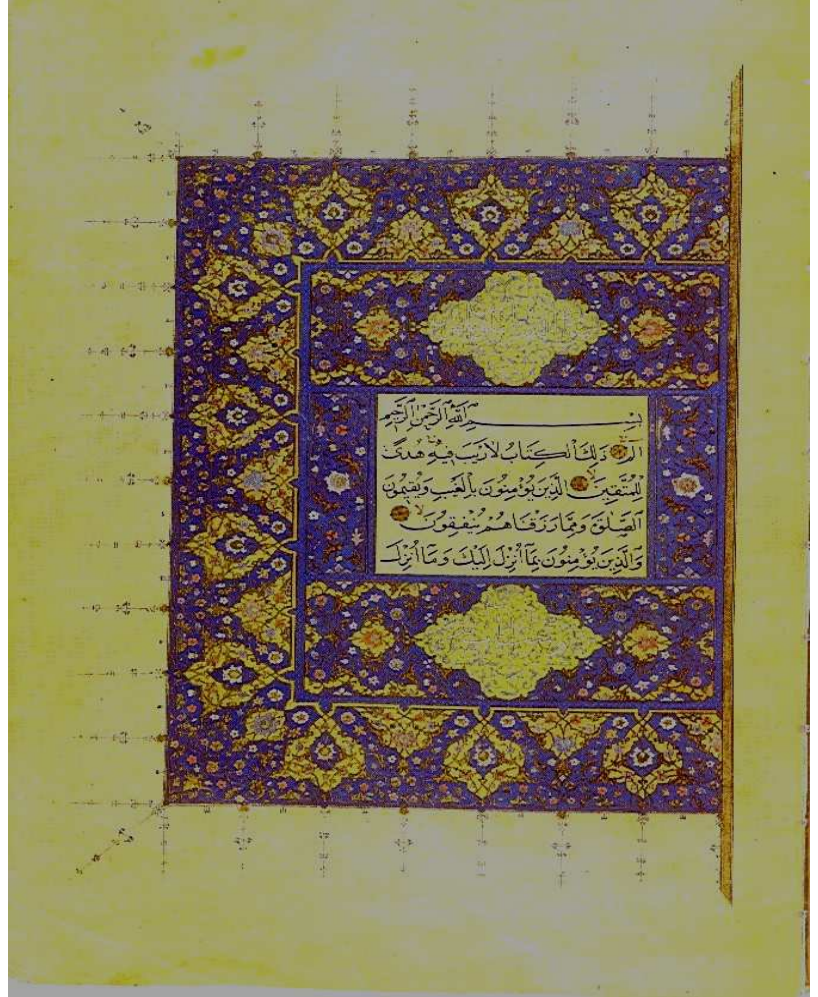 بِسْمِ ٱللَّهِ ٱلرَّحْمٰنِ ٱلرَّحِيمِ
الٓمٓ ذَٰلِكَ ٱلْكِتَابُ لَا رَيْبَ فِيهِ هُدًى
لِلْمُتَّقِينَ الَّذِينَ يُؤْمِنُونَ بِالْغَيْبِ وَيُقِيمُونَ
ٱلصَّلٰوةَ وَمِمَّا رَزَقْنَاهُمْ يُنْفِقُونَ
وَالَّذِينَ يُؤْمِنُونَ بِمَا أُنْزِلَ إِلَيْكَ وَمَا أُنْزِلَ